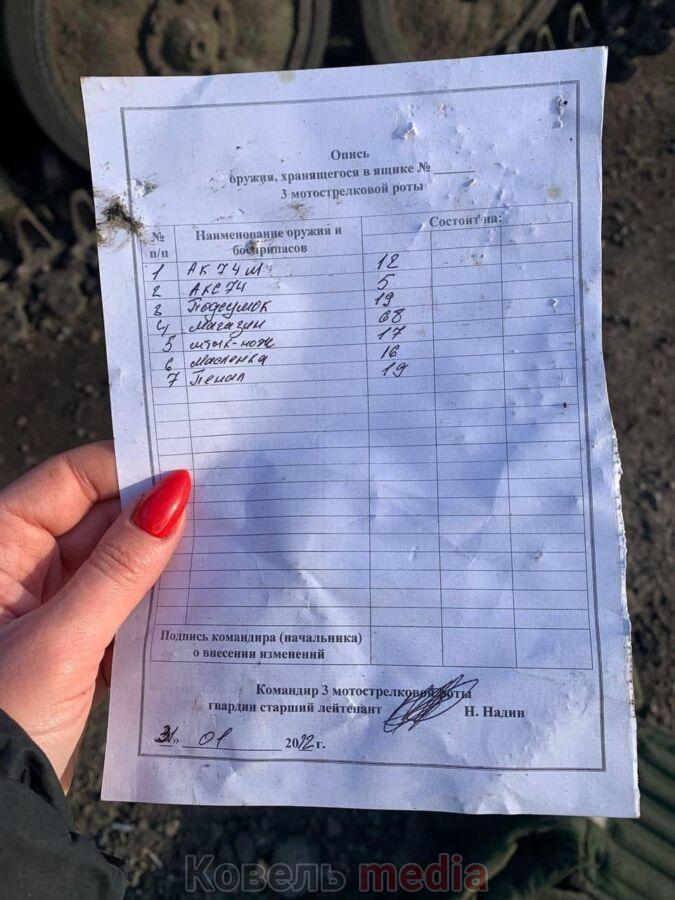 Опись
оружия, хранящегося в ящике № ____
3 мотострелковой роты
№ п/п Наименование оружия и боеприпасов Состоит на:
1 АК 74 М 12
2 АКС 74 5
3 Подсумок 19
4 Магазин 68
5 штык-нож 17
6 Масленка 16
7 Пенал 19
Подпись командира (начальника)
о внесении изменений
Командир 3 мотострелковой роты
гвардии старший лейтенант Н. Надин
31» 01 2012 г.
Ковель media